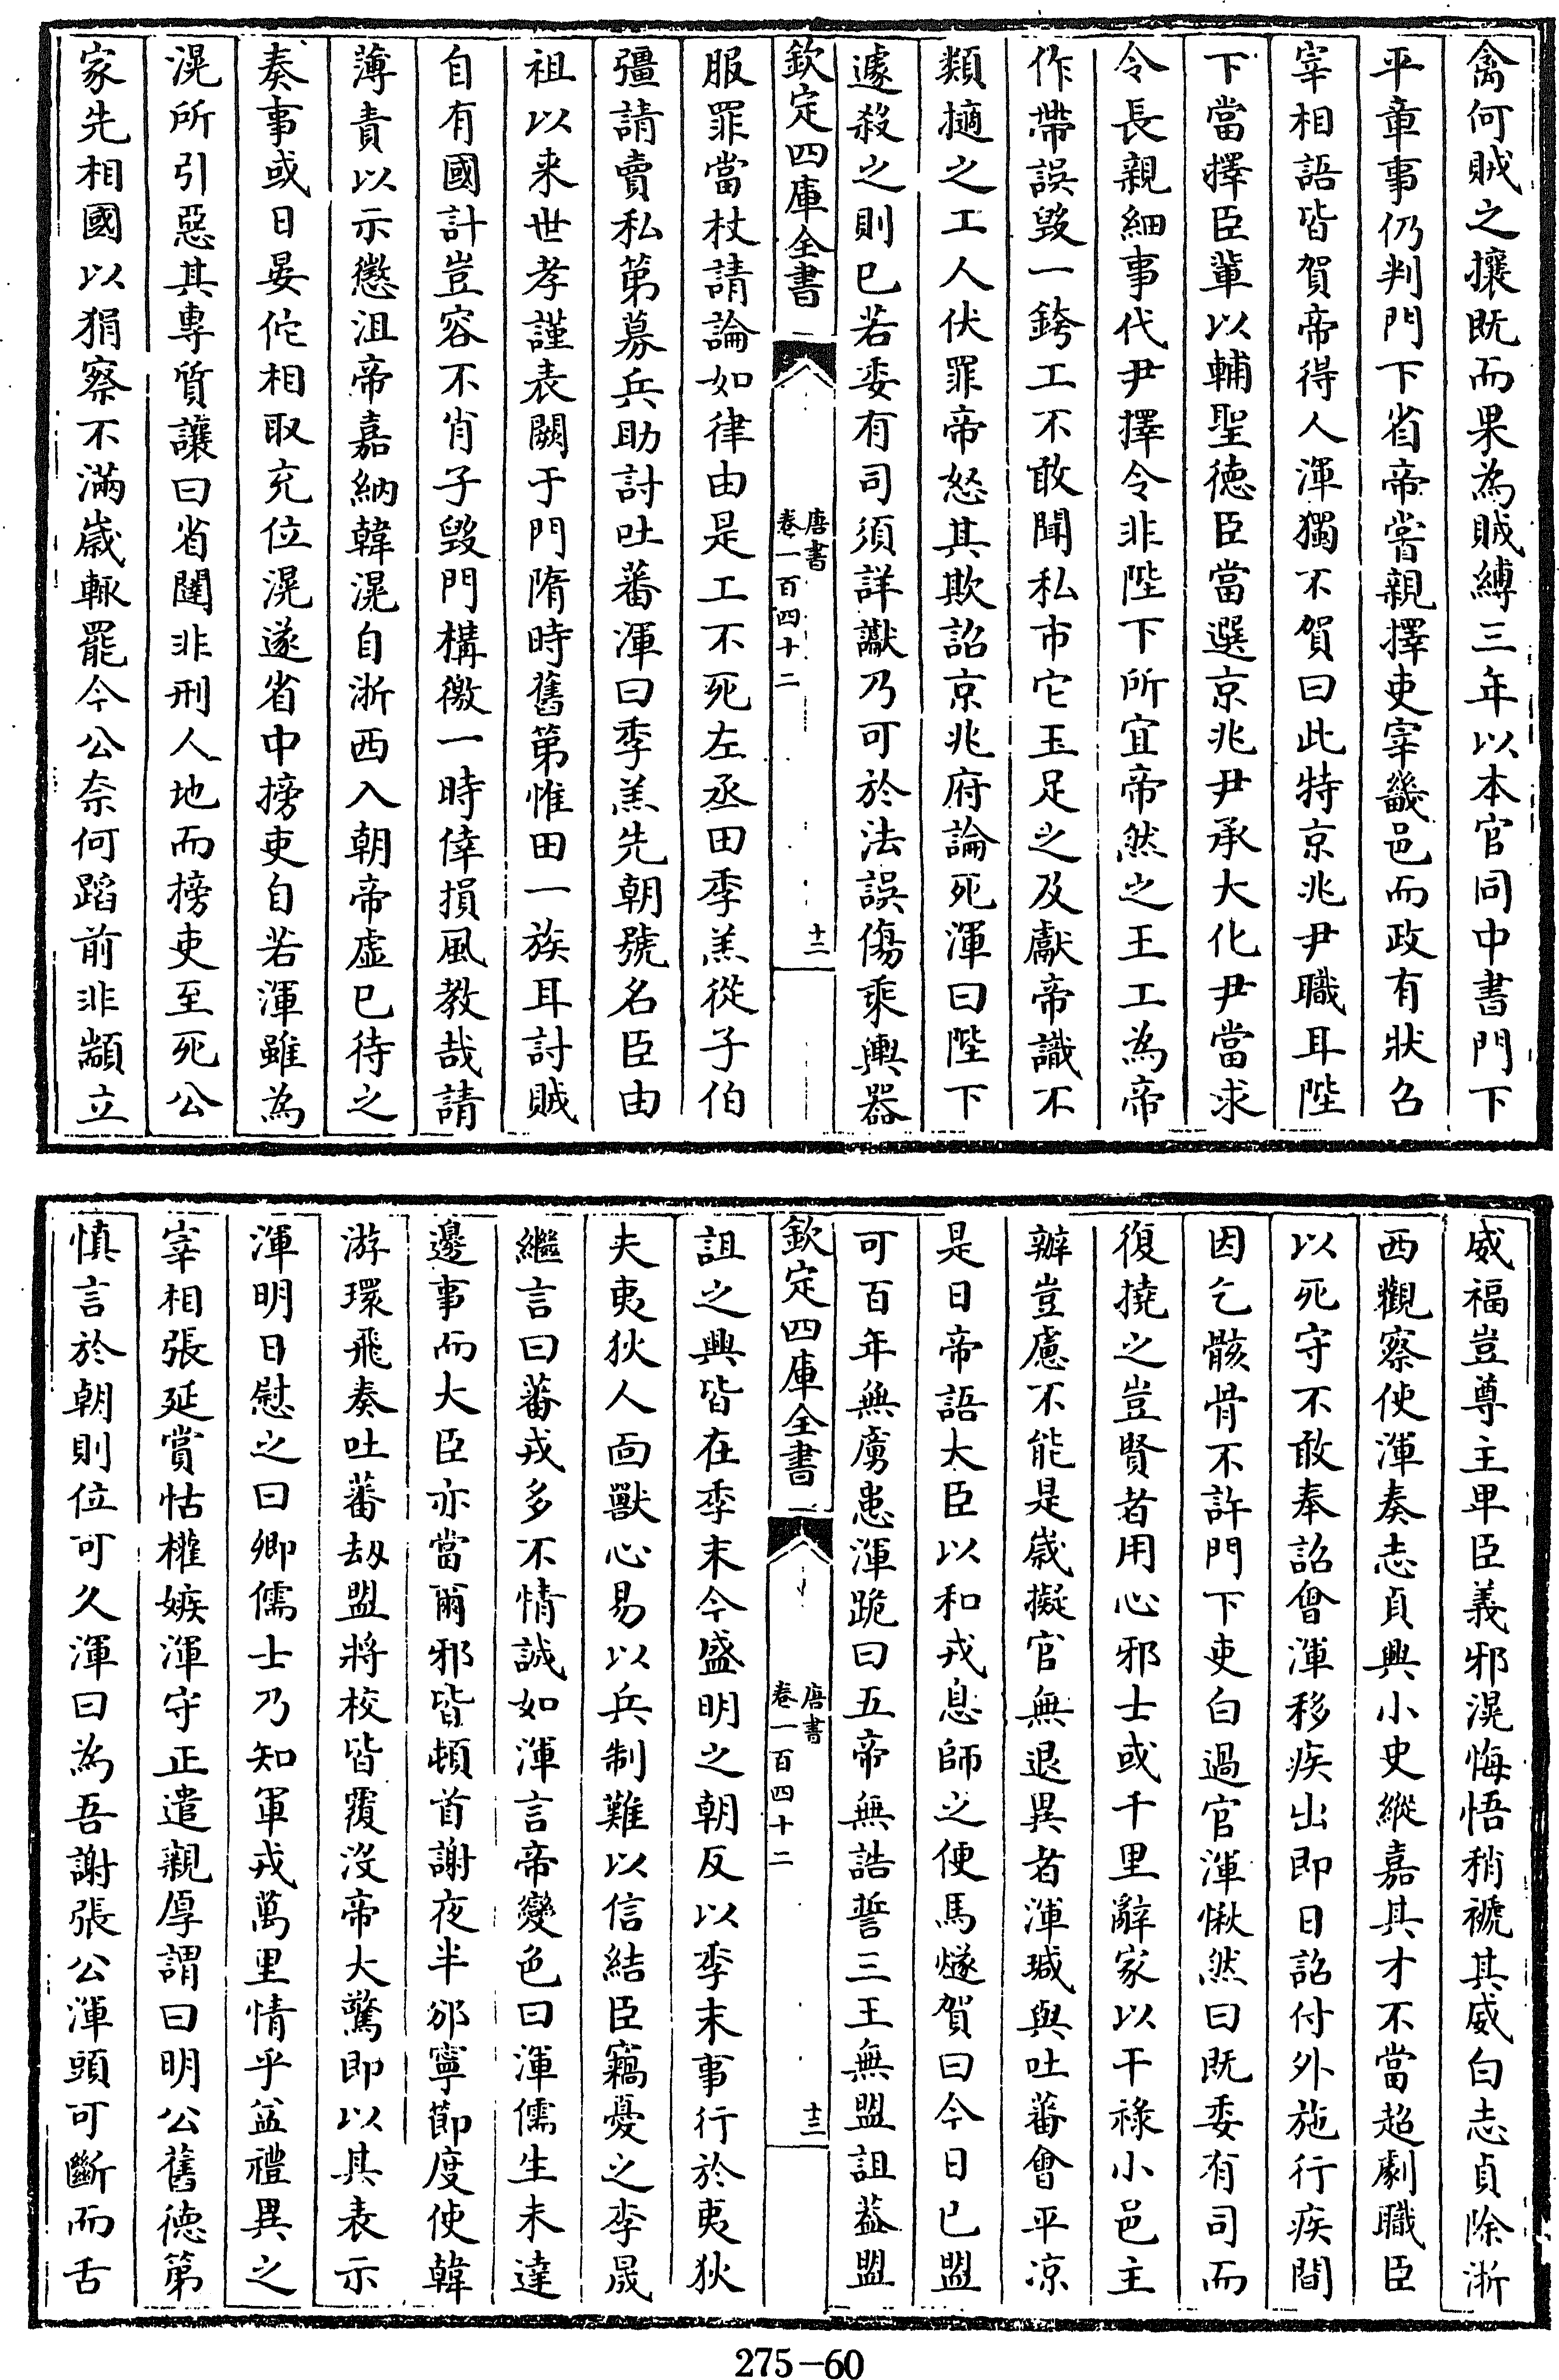 禽何賊之攘既而果為賊縛三年以本官同中書門下
平章事仍判門下省帝嘗親擇吏宰畿邑而政有狀召
宰相語皆賀帝得人渾獨不賀曰此特京兆尹職耳陛
下當擇臣輩以輔聖德臣當選京兆尹承大化尹當求
令長親細事代尹擇令非陛下所宜帝然之玉工為帝
作帶誤毀一銙工不敢聞私市它玉足之及獻帝識不
類擿之工人伏罪帝怒其欺詔京兆府論死渾曰陛下
遽殺之則已若委有司須詳讞乃可於法誤傷乘輿器
欽定四庫全書
唐書
卷一百四十二
十二
服罪當杖請論如律由是工不死左丞田季羔從子伯
彊請賣私第募兵助討吐蕃渾曰季羔先朝號名臣由
祖以来世孝謹表闕于門隋時舊第惟田一族耳討賊
自有國計豈容不肖子毀門構徼一時倖損風教哉請
薄責以示懲沮帝嘉納韓滉自浙西入朝帝虛已待之
奏事或日晏佗相取充位滉遂省中搒吏自若渾雖為
滉所引惡其專質讓曰省闥非刑人地而榜吏至死公
家先相國以狷察不滿歲輒罷今公奈何蹈前非顓立
威福豈尊主卑臣義邪滉悔悟稍褫其威白志貞除浙
西觀察使渾奏志貞興小史縱嘉其才不當超劇職臣
以死守不敢奉詔會渾移疾出即日詔付外施行疾間
因乞骸骨不許門下吏白過官渾愀然曰既委有司而
復撓之豈賢者用心邪士或千里辭家以干祿小邑主
辦豈慮不能是歲擬官無退異者渾瑊與吐蕃會平涼
是日帝語大臣以和戎息師之便馬燧賀曰今日已盟
可百年無虜患渾跪曰五帝無誥誓三王無盟詛葢盟
欽定四庫全書
唐書
卷一百四十二
十三
詛之興皆在季末今盛明之朝反以季末事行於夷狄
夫夷狄人面獸心易以兵制難以信結臣竊憂之李晟
繼言曰蕃戎多不情誠如渾言帝變色曰渾儒生未達
邊事而大臣亦當爾邪皆頓首謝夜半邠寧節度使韓
游環飛奏吐蕃刼盟將校皆覆沒帝大驚即以其表示
渾明日慰之曰卿儒士乃知軍戎萬里情乎益禮異之
宰相張延賞怙權嫉渾守正遣親厚謂曰明公舊德第
慎言於朝則位可久渾曰為吾謝張公渾頭可斷而舌
275-60